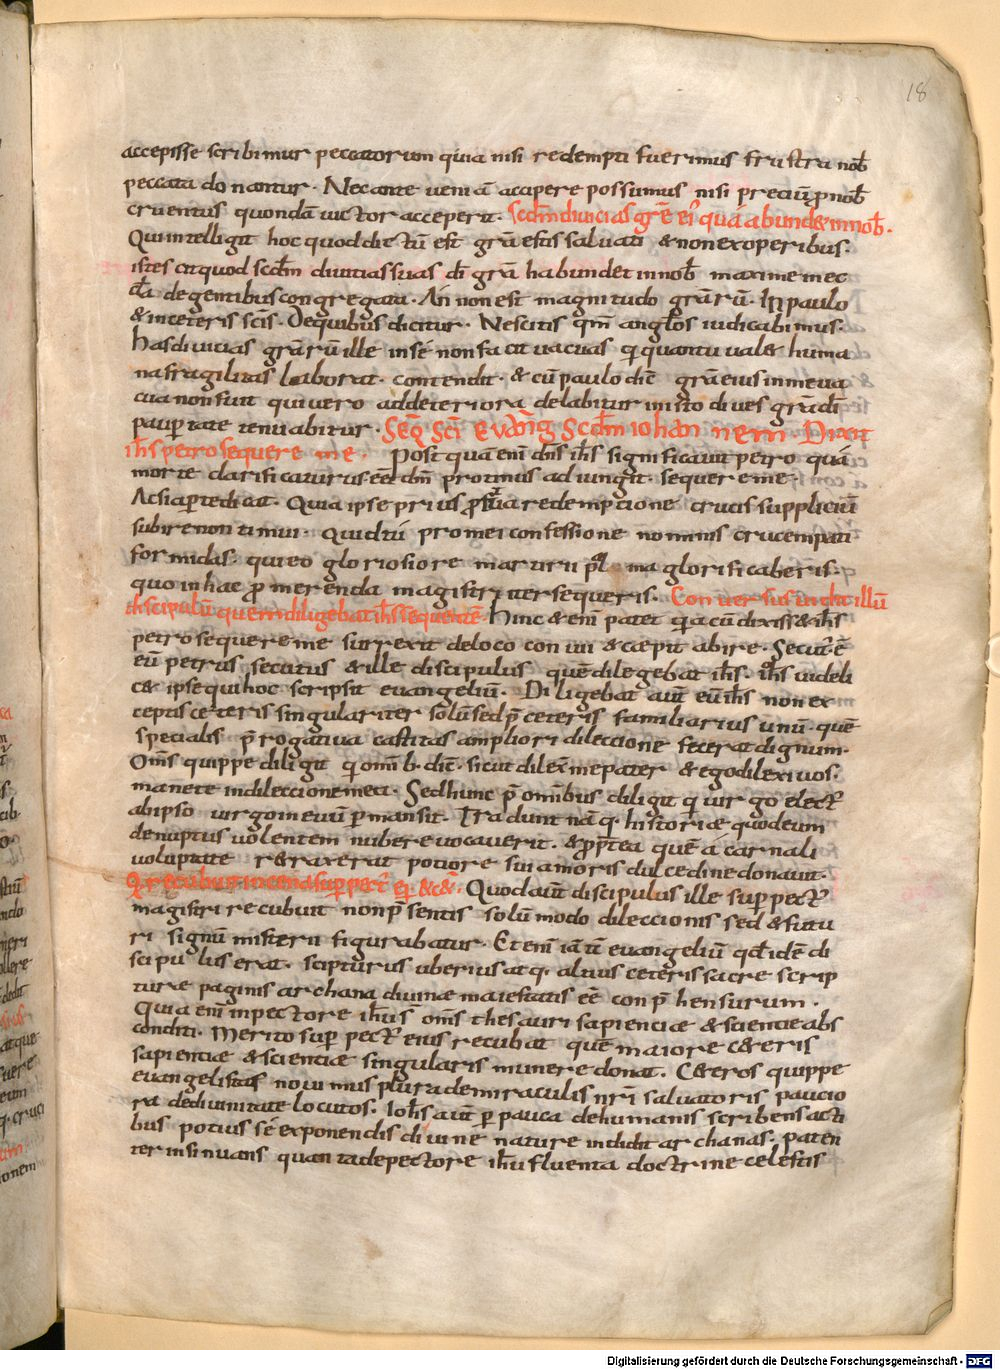 18
accepisse scribimur peccatorum quia nisi redempti fuerimus frustra nob̄
peccata donantur. Nec ante ueniā accipere possumus nisi preciū ꝓ nob̄
cruentus quondā uictor acceperit. Scdm̄ diuicias grē ei' quā abund& in nob̄.
Qui intelligit hoc quod dictū est grā estis saluati & non ex operibus.
iste scit quod scdm̄ diuitias suas dī grā habundet in nob̄ maxime in ec
cl̄a de gentibus congregata. An non est magnitudo grārū. In paulo
& in ceteris scīs. De quibus dicitur. Nescitis qm̄ anglōs iudicabimus.
Has diuicias grārū ille in sé non facit uacuas qi quantū ual& huma
na fragilitas laborat. contendit. & cū paulo diē grā eius in me ua
cua non fuit qui uero ad deteriora delabitur in isto diues grā dī
pauꝑtate tenuabitur. Seq̄ scī euāng scdm̄ iohannem. Dixit
ih̄s petro sequere me. Post quā enī dn̄s ih̄s significauit petro quá
morte clarificaturus eēt dm̄ protinus adiungit. sequere me.
Ac si aꝑte dicat. Quia ipse prius ꝓ tua redemptione crucis suppliciū
subire non timui. Quid tú pro mei confessione nominis crucem pati
formidas. qui eo gloriosiore martirii pal ma glorificaberis.
quo in hac ꝓmerenda magistri iter sequeris. Conuersus uidit illū
discipulū quem diligebat ih̄s sequentē. Hinc & enī patet qia cū dixiss& ih̄s
petro sequere me surrexit de loco conuiuii & cæpit abire. Secut' ē
eū petrus secutus & ille discipulus quē dilegebat ih̄s. ih̄s uideli
c& ipse qui hoc scripsit euangeliū. Diligebat aut̄ eū ih̄s non ex
ceptis ceteris singulariter solū sed p̄ ceteris familiarius unū. quē
specialis p̄rogatiua castitas ampliori dileccione fecerat dignum.
Om̄s quippe diligit qi om̄ib. diē. sicut dilex̄ me pater & ego dilexi uos.
manete in dileccione mea. Sed hunc p̄ omnibus diligit qi uirgo elect'
ab ipso uirgo in euū ꝑmansit. Tradunt nāq. historiæ quod eum
de nuptus uolentem nubere uocauerit. & ꝓpt̄ea quē a carnali
uoluptate r&raxerat potiore sui amoris dulcedine donauit.
Qi recubuit in cena sup̄ pect' ei' & c&. Quod aut̄ discipulus ille sup̄ pect'
magistri recubuit non p̄sentis solūmodo dileccionis sed & futu
ri signū misterii figurabatur. Etenī iā tū euangeliū qd̄ idē di
scipulus erat. scipturus uberius atq. altius ceteris sacre scrip
ture paginis archana diuinæ maiestatis eē conp̄hensurum.
Quia enī in pectore ih̄u s om̄s thesauri sapienciæ & scientie abs
conditi. Merito sup̄ pect' eius recubat quē maiore c&eris
sapienciæ & scienciæ singularis munere donat. C&eros quippe
euangelistas nouimus plura de miraculis nr̄i saluatoris paucio
ra de diuinitate locutos. Ioh̄s aut̄ ꝑpauca de humanis scribens acti
bus potius sé exponendis diuine nature indidit archanas. paten
ter insinuans quanta de pectore ih̄u fluenta doctrine celestis
Digitalisierung gefördert durch die Deutsche Forschungsgemeinschaft - DFG